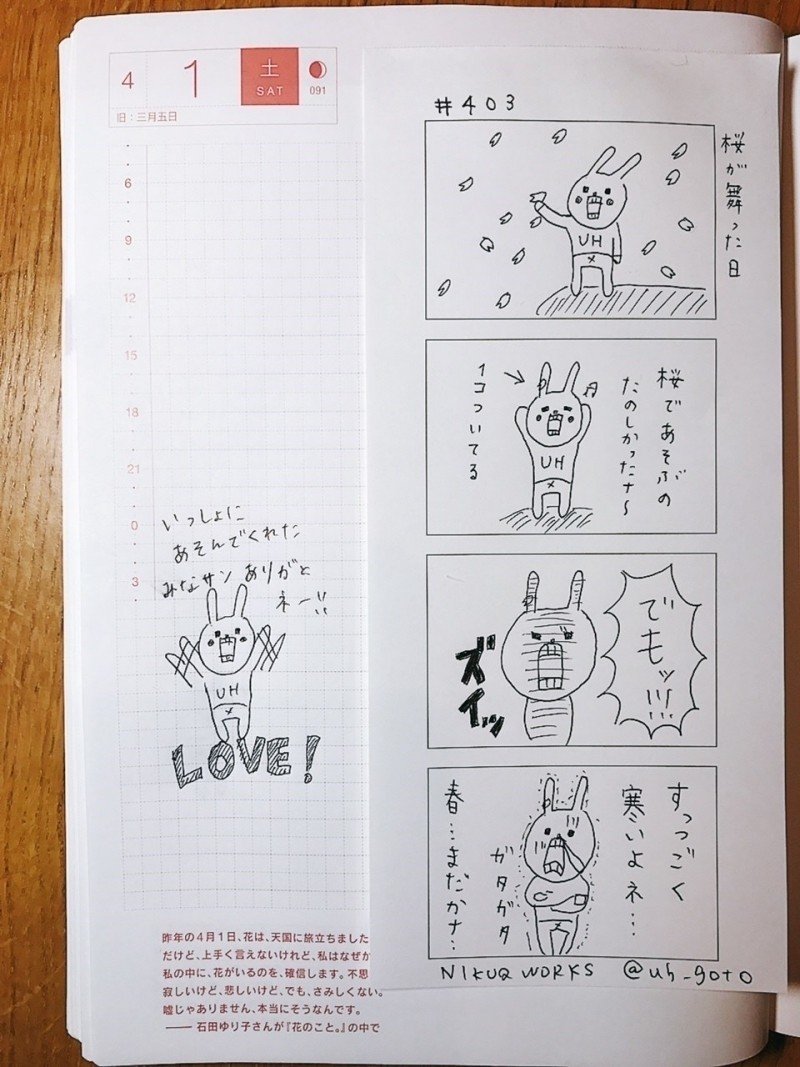 4 1 土 SAT 091
旧：三月五日
6
9
12
15
18
21
0
3
いっしょに
あそんでくれた
みなサン ありがと
ネー!!
UH
LOVE!
昨年の4月1日、花は、天国に旅立ちました
だけど、上手く言えないけれど、私はなぜか
私の中に、花がいるのを、確信します。不思
寂しいけど、悲しいけど、でも、さみしくない。
嘘じゃありません、本当にそうなんです。
── 石田ゆり子さんが『花のこと。』の中で
#403
桜が舞った日
UH
桜であそぶの
たのしかったナ〜
1コついてる
UH
でもッ!!!
ズイッ
すっっごく
寒いよネ…
ガタガタ
春…まだかナ…
NIKUQ WORKS @uh_goto